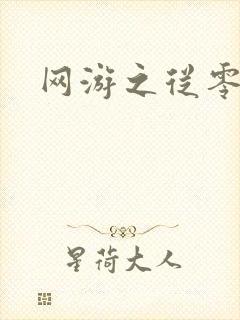 网游之从零
星荷大人